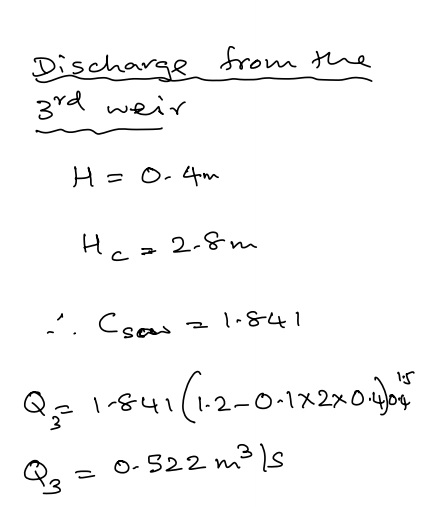 Discharge from the
3rd weir
H = 0.4m
Hc = 2.8m
∴ Cscw = 1.841
Q3 = 1.841(1.2-0.1x2x0.4)0.4^1.5
Q3 = 0.522 m³/s